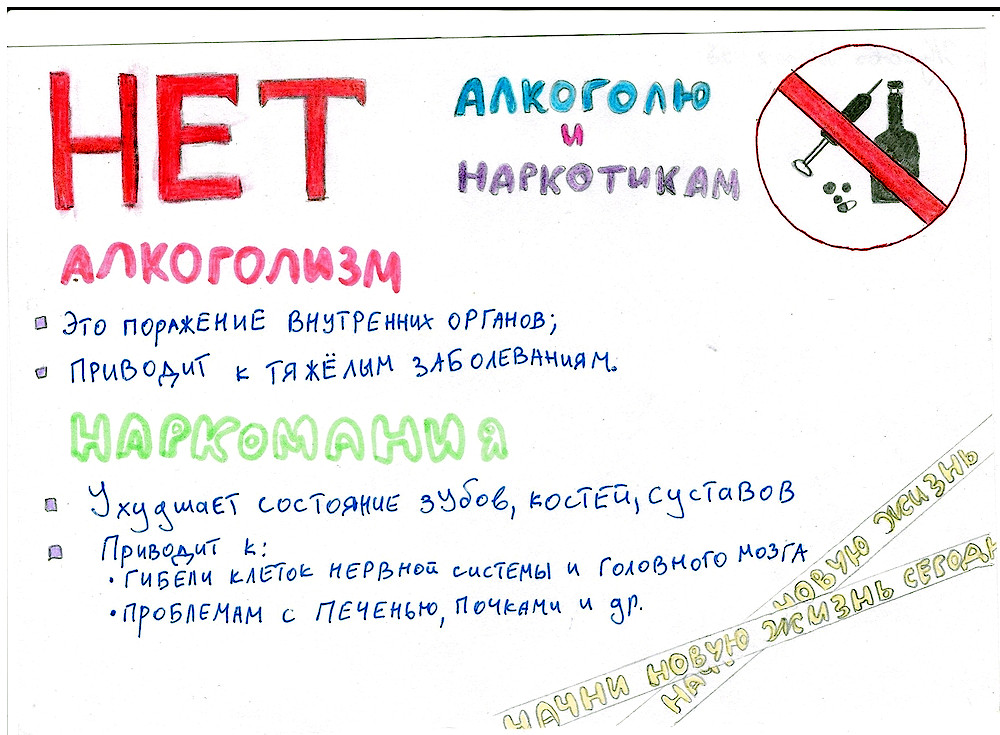 НЕТ
АЛКОГОЛЮ
И
НАРКОТИКАМ
АЛКОГОЛИЗМ
ЭТО ПОРАЖЕНИЕ ВНУТРЕННИХ ОРГАНОВ;
ПРИВОДИТ К ТЯЖЁЛЫМ ЗАБОЛЕВАНИЯМ.
НАРКОМАНИЯ
Ухудшает состояние зубов, костей, суставов
Приводит к:
• ГИБЕЛИ КЛЕТОК НЕРВНОЙ СИСТЕМЫ И ГОЛОВНОГО МОЗГА
• ПРОБЛЕМАМ С ПЕЧЕНЬЮ, ПОЧКАМИ И др.
НОВУЮ ЖИЗНЬ
НАЧНИ НОВУЮ ЖИЗНЬ СЕГОДН
НАЧ